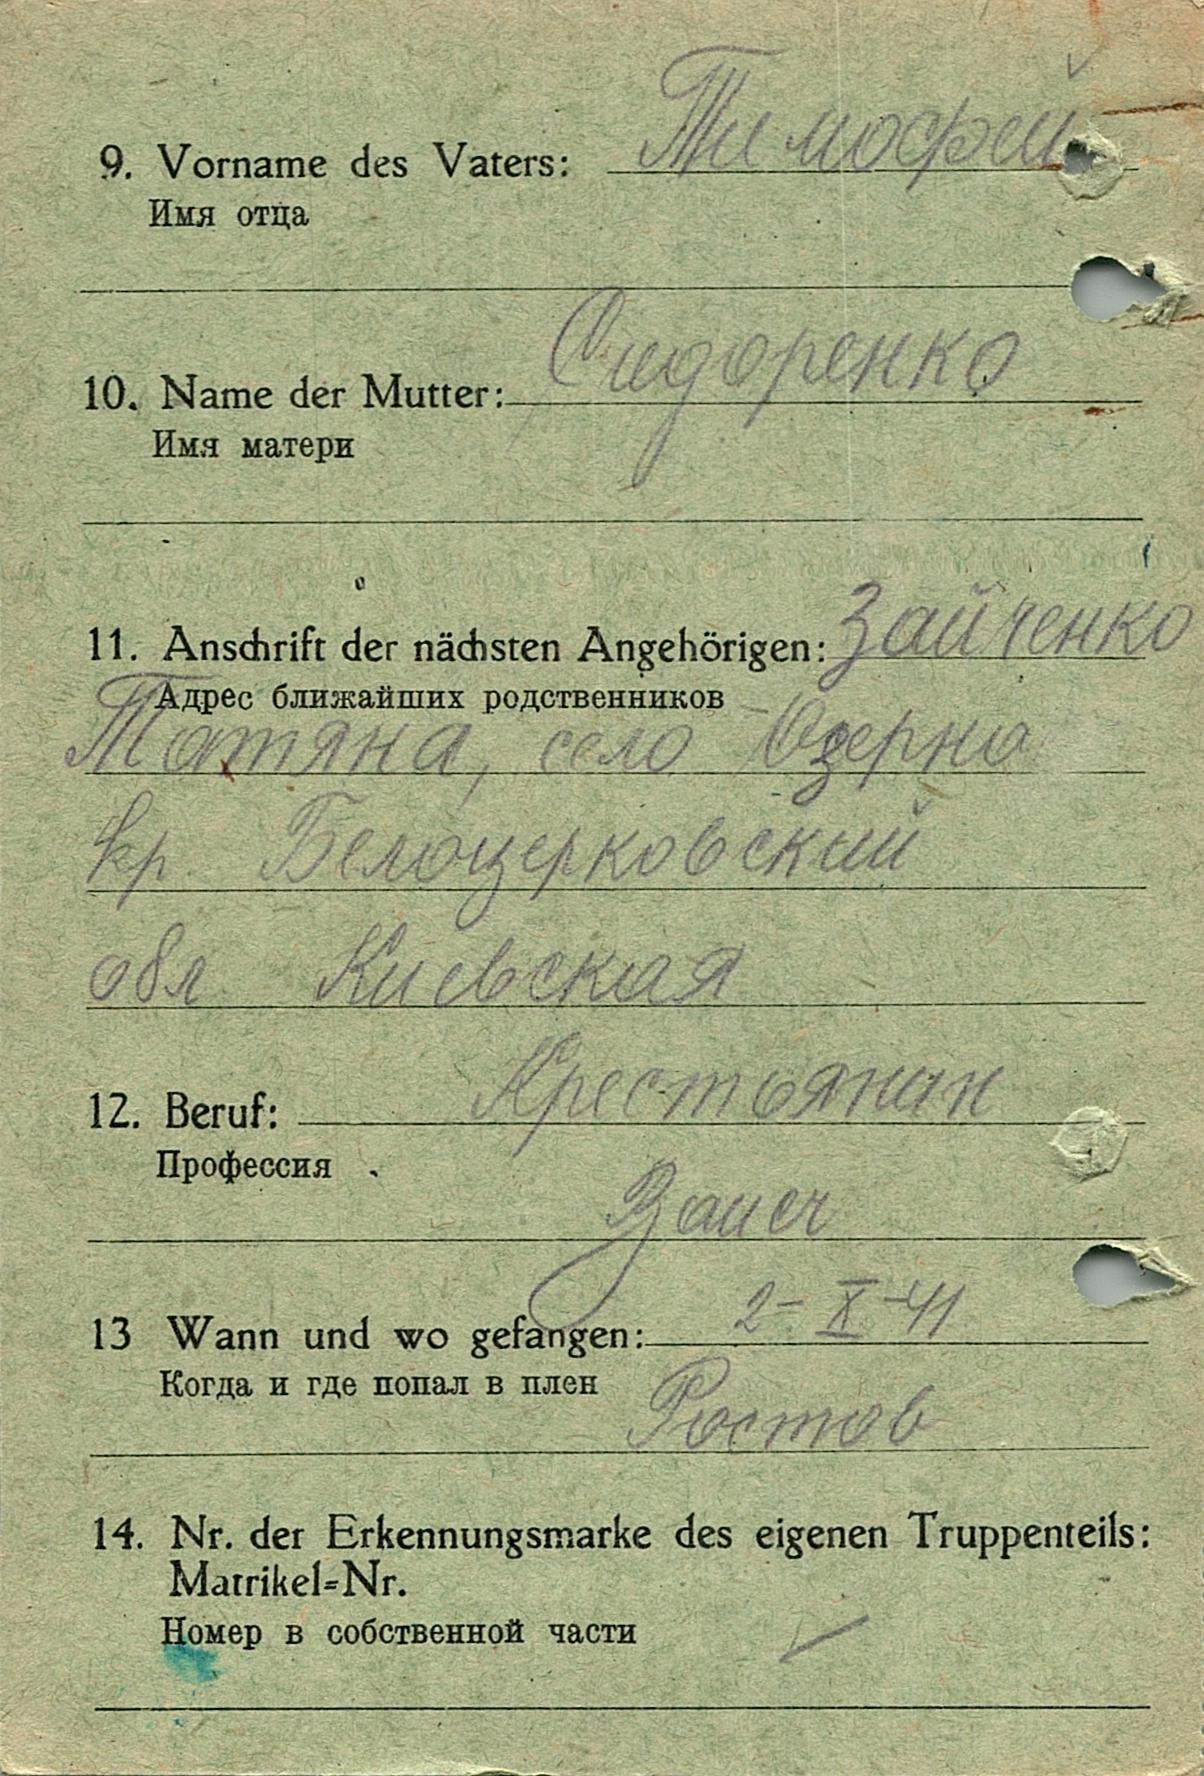 9. Vorname des Vaters: Тимофей
Имя отца
10. Name der Mutter: Сидоренко
Имя матери
11. Anschrift der nächsten Angehörigen: Зайченко
Адрес ближайших родственников
Татяна, село Озерно
кр. Белоцерковский
обл Киевская
12. Beruf: Крестьянин
Профессия
13 Wann und wo gefangen: 2-X-41
Когда и где попал в плен
Ростов
14. Nr. der Erkennungsmarke des eigenen Truppenteils:
Matrikel=Nr.
Номер в собственной части